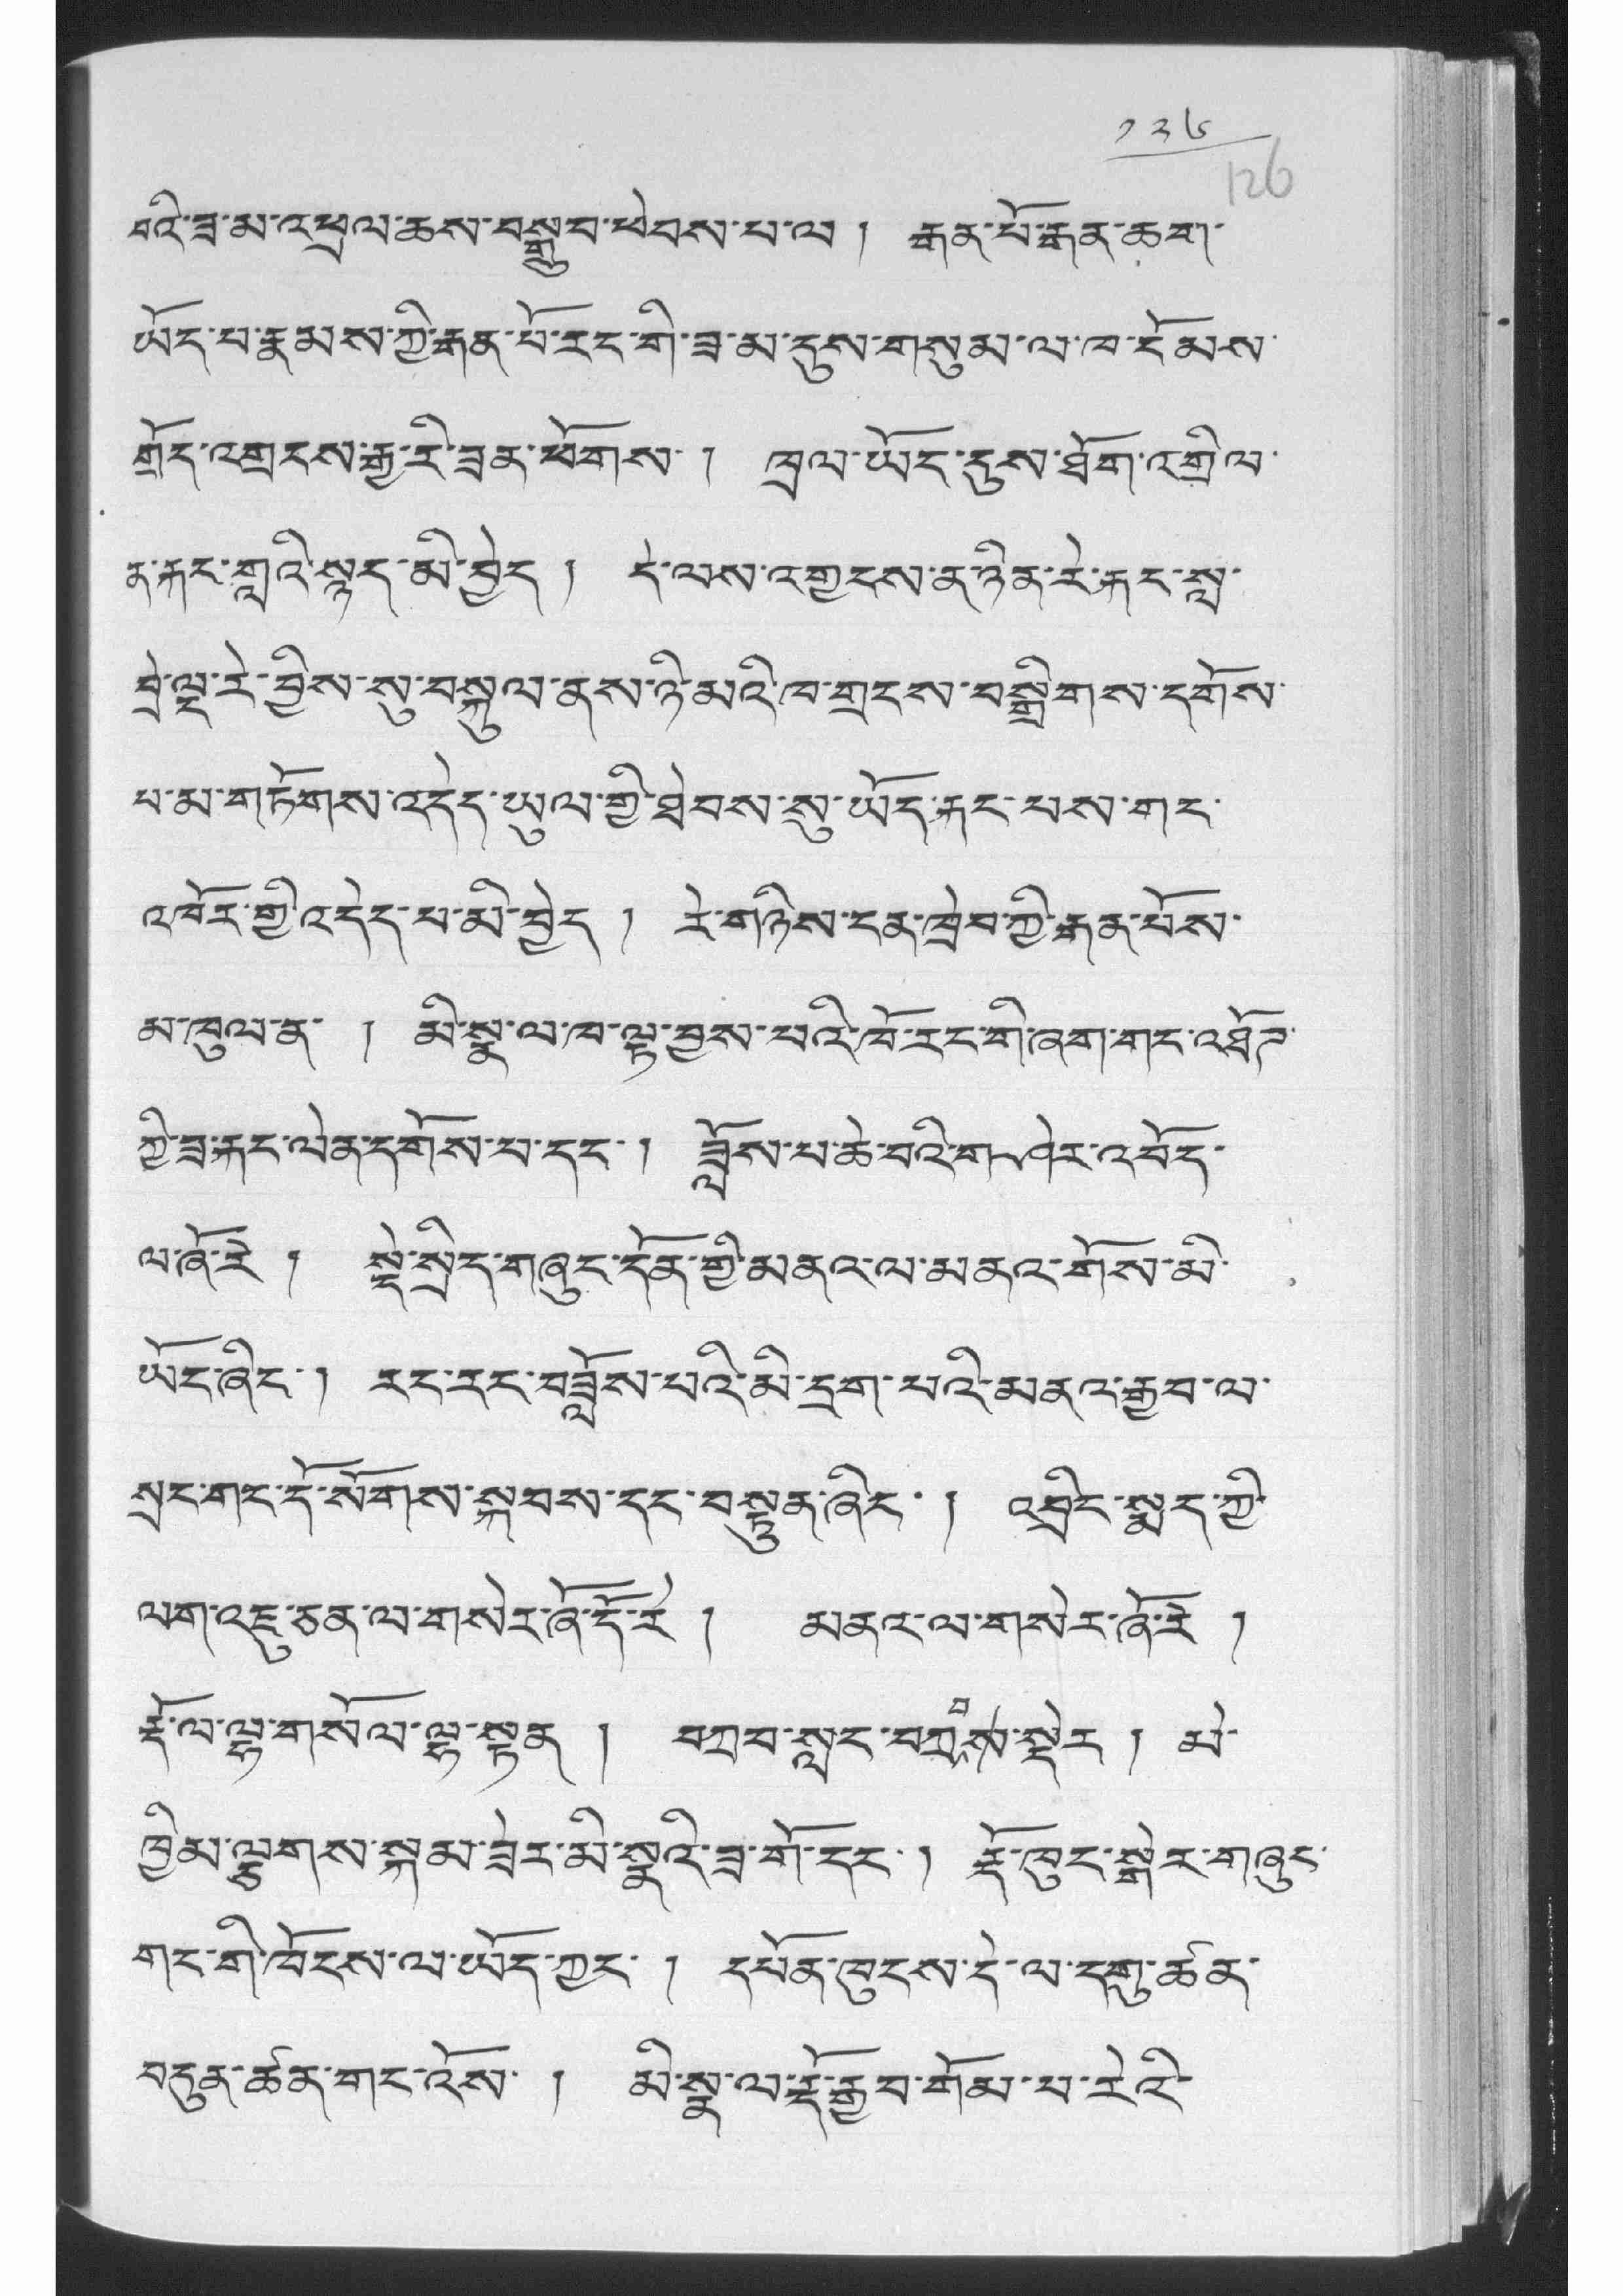 ༡༢༦
126
བའི་ཟ་མ་འཕྲལ་ཆས་བསྒྲུབ་ཕེབས་པ་ལ། རྒན་པོ་རྒན་ཆག་
ཡོད་པ་རྣམས་ཀྱི་རྒན་པོ་རང་གི་ཟ་མ་དུས་གསུམ་ལ་ཁ་དོམས་
གྲོད་འགྲངས་རྒྱ་རི་ཟན་ཕོགས། ཁྲལ་ཡོད་དུས་ཐོག་འགྲིལ་
ན་རྐང་གླའི་སྙད་མི་བྱེད། དེ་ལས་འགྱངས་ན་ཉིན་རེ་རྐང་སླ་
བྲེ་ལྔ་རེ་བྱིས་སུ་བསྐུལ་ནས་ཉི་མའི་ཁ་གྲངས་བསྒྲིགས་དགོས་
པ་མ་གཏོགས་འདེད་ཡུལ་གྱི་ཐེབས་སུ་ཡོད་རྐང་པས་གང་
འཁོར་གྱི་འདེད་པ་མི་བྱེད། རེ་གཉིས་ངན་ཁྲེབ་ཀྱི་རྒན་པོས་
མ་ཁུལ་ན། མི་སྣ་ལ་ཁ་ལྟ་བྱས་པའི་ཁོ་རང་གི་ཞག་གང་འཐོབ་
ཀྱི་ཟ་རྐང་ལེན་དགོས་པ་དང་། ཟློས་པ་ཆེ་བའི་གཤེར་འབོད་
ལ་ཞོ་རེ། སྡེ་སྲིད་གཞུང་དོན་གྱི་མནའ་ལ་མནའ་གོས་མི་
ཡོང་ཞིང་། རང་རང་བཟློས་པའི་མི་དྲག་པའི་མནའ་རྒྱབ་ལ་
སྲང་གང་དོ་སོགས་སྐབས་དང་བསྟུན་ཞིང་། འབྲིང་སྨད་ཀྱི་
ལག་འཇུ་ཅན་ལ་གསེར་ཞོ་དོ་རེ། མནའ་ལ་གསེར་ཞོ་རེ།
རྡོ་ལ་ལྷ་གསོལ་ལྷ་སྟན། བཀབ་སླང་བཀྲིས་སྡེར། མེ་
ཁྱིམ་ལྕགས་སྐམ་ཟེར་མི་སྣའི་ཟ་གོ་དང་། རྡོ་ཁུང་སྒེར་གཞུང་
གང་གི་ཁོངས་ལ་ཡོད་ཀྱང་། དཔོན་ཁུངས་དེ་ལ་དགུ་ཚན་
བདུན་ཚན་གང་འོས། མི་སྣ་ལ་རྡོ་རྒྱབ་གོམ་པ་རེའི་